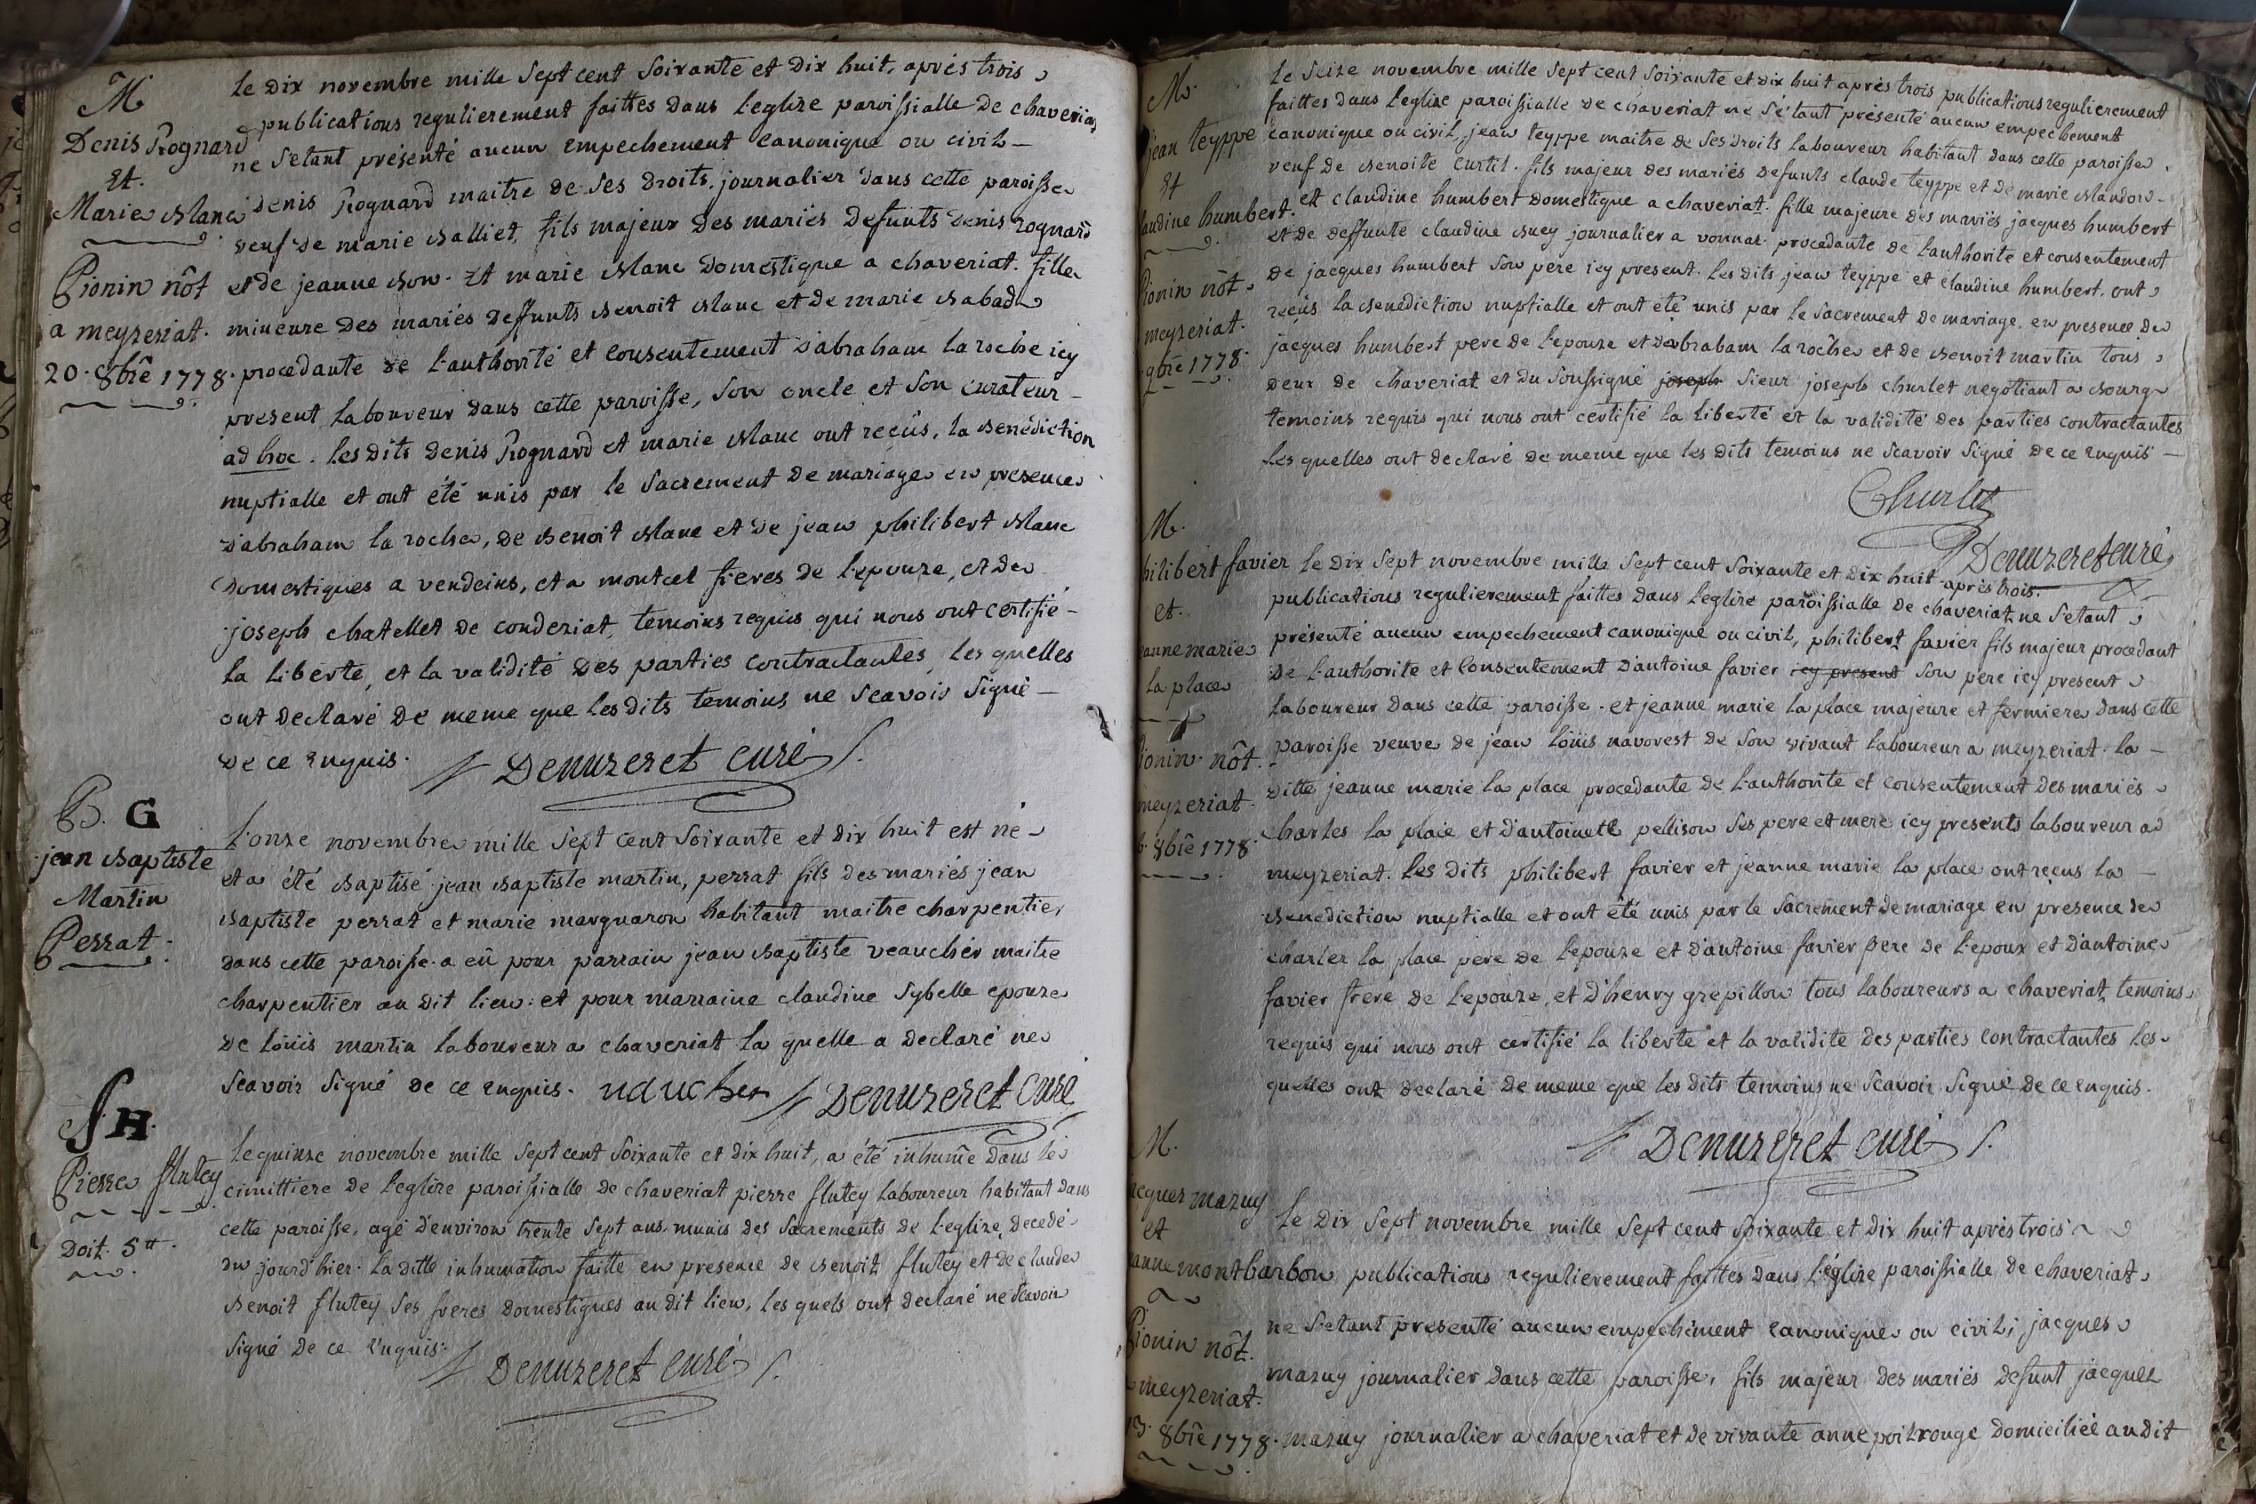 M
Denis Rognard
Et.
Marie Blanc
Pionin nôt
a meyzeriat.
20. 8bre 1778.
le dix novembre mille sept cent soixante et dix huit, aprés trois
publications regulierement faittes dans l'eglize paroissialle de chaveriat
ne s'etant présenté aucun empechement canonique ou civil
denis Rognard maitre de ses droits, journalier dans cette paroisse
veuf de marie Balliet, fils majeur des mariés defunts denis rognard
et de jeanne Bon. Et marie Blanc domestique a chaveriat. fille
mineure des mariés deffunts Benoit Blanc et de marie Rabad
procedante de l'authorité et consentement d'abraham la roche icy
present laboureur dans cette paroisse, son oncle et son curateur
ad hoc. les dits denis Rognard et marie Blanc ont reçûs, la Benédiction
nuptialle et ont été unis par le sacrement de mariage en presence
d'abraham la roche, de Benoit Blanc et de jean philibert Blanc
domestiques a vendeins, et a montcet freres de l'epouze, et de
joseph chatellet de conderiat, temoins requis qui nous ont certifié
la liberté, et la validité des parties contractantes, les quelles
ont declaré de meme que les dits temoins ne scavoir signé
de ce enquis. Denuzeret curé
B. G
jean Baptiste
Martin
Perrat.
l'onze novembre mille sept cent soixante et dix huit est né
et a été Baptisé jean Baptiste martin, perrat fils des mariés jean
Baptiste perrat et marie marguaron habitant maitre charpentier
dans cette paroisse. a eû pour parrain jean Baptiste veaucher maitre
charpentier au dit lieu: et pour marraine claudine sybelle epouze
de loüis martin laboureur a chaveriat la quelle a declaré ne
scavoir signé de ce enquis. vaucher Denuzeret curé
S H.
Pierre flutey
Doit. 5tt.
le quinze novembre mille sept cent soixante et dix huit, a été inhumé dans le
cimittiere de l'eglize paroissialle de chaveriat pierre flutey laboureur habitant dans
cette paroisse, agé d'environ trente sept ans. munis des sacrements de l'eglize, decedé
du jourd'hier. la ditte inhumation faitte en presence de Benoit flutey et de claude
Benoit flutey ses freres domestiques au dit lieu, les quels ont declaré ne scavoir
signé de ce enquis. Denuzeret curé
M.
jean teyppe
Et
audine humbert.
Pionin nôt
meyzeriat.
9bre 1778.
le seize novembre mille sept cent soixante et dix huit aprés trois publications regulierement
faittes dans l'eglize paroissialle de chaveriat ne s'étant présenté aucun empechement
canonique ou civil, jean teyppe maitre de ses droits laboureur habitant dans cette paroisse
veuf de Benoite curtil. fils majeur des mariés defunts claude teyppe et de marie Blandon
et claudine humbert domestique a chaveriat. fille majeure des mariés jacques humbert
et de deffunte claudine Buey journalier a vonnas. procedante de l'authorité et consentement
de jacques humbert son pere icy present. les dits jean teyppe et claudine humbert, ont
reçûs la Benediction nuptialle et ont été unis par le sacrement de mariage. en presence de
jacques humbert pere de l'epouze et d'abraham la roche et de Benoit martin tous
deux de chaveriat et du soussigné joseph sieur joseph churlet negotiant a Bourg
temoins requis qui nous ont certifié la liberté et la validité des parties contractantes
les quelles ont declaré de meme que les dits temoins ne scavoir signé de ce enquis
Churlet
Denuzeret curé
M.
hilibert favier
et.
anne marie
la place
ionin. nôt.
meyzeriat.
8bre 1778.
le dix sept novembre mille sept cent soixante et dix huit aprés trois
publications regulierement faittes dans l'eglize paroissialle de chaveriat, ne s'etant
présenté aucun empechement canonique ou civil, philibert favier fils majeur procedant
de l'authorité et consentement d'antoine favier icy present son pere icy present
laboureur dans cette paroisse. et jeanne marie la place majeure et fermiere dans cette
paroisse veuve de jean loüis navorest de son vivant laboureur a meyzeriat. la
ditte jeanne marie la place procedante de l'authorité et consentement des mariés
charles la place et d'antoinette pellison ses pere et mere icy presents laboureur ad
meyzeriat. les dits philibert favier et jeanne marie la place ont reçus la
Benediction nuptialle et ont été unis par le sacrement de mariage en presence de
charles la place pere de l'epouze et d'antoine favier pere de l'epoux et d'antoine
favier frere de l'epouze, et d'henry grepillon tous laboureurs a chaveriat, temoins
requis qui nous ont certifié la liberté et la validité des parties contractantes les
quelles ont declaré de meme que les dits temoins ne scavoir signé de ce enquis.
Denuzeret curé
M.
acques mazuy
et
anne montbarbon
Pionin nôt.
meyzeriat.
13. 8bre 1778.
le dix sept novembre mille sept cent soixante et dix huit aprés trois
publications regulierement faittes dans l'église paroissialle de chaveriat
ne s'etant presenté aucun empechement canonique ou civil; jacques
mazuy journalier dans cette paroisse, fils majeur des mariés defunt jacques
mazuy journalier a chaveriat et de vivante anne poitrouge domiciliée au dit